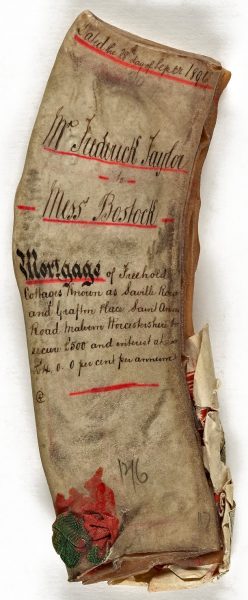 Dated the 29th day of Septr 1896
Mr Frederick Taylor
to
Mess Bostock
Mortgage of Freehold
Cottages Known as Saville Row
and Grafton Place Saint Anns
Road Malvern Worcestershire to
secure £500 and interest at
£4. 0. 0 per cent per annum
@
1276